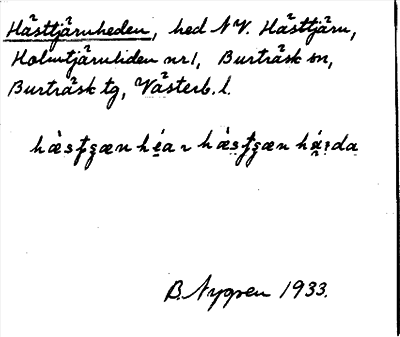 Hästtjärnheden, hed NV. Hästtjärn,
Holmtjärnliden nr 1, Burträsk sn,
Burträsk tg, Västerb. l.
B. Nygren 1933.